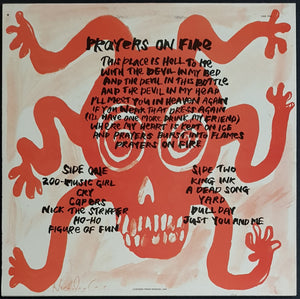 PRAYERS ON FIRE
THIS PLACE IS HELL TO ME
WITH THE DEVIL IN MY BED
AND THE DEVIL IN THIS BOTTLE
AND THE DEVIL IN MY HEAD
I'LL MEET YOU IN HEAVEN AGAIN
IF YOU WEAR THAT DRESS AGAIN
(I'LL HAVE ONE MORE DRINK MY FRIEND)
WHERE MY HEART IS KEPT ON ICE
AND PRAYERS BURST INTO FLAMES
PRAYERS ON FIRE
SIDE ONE
ZOO-MUSIC GIRL
CRY
CAPERS
NICK THE STRIPPER
HO-HO
FIGURE OF FUN
SIDE TWO
KING INK
A DEAD SONG
YARD
DULL DAY
JUST YOU AND ME